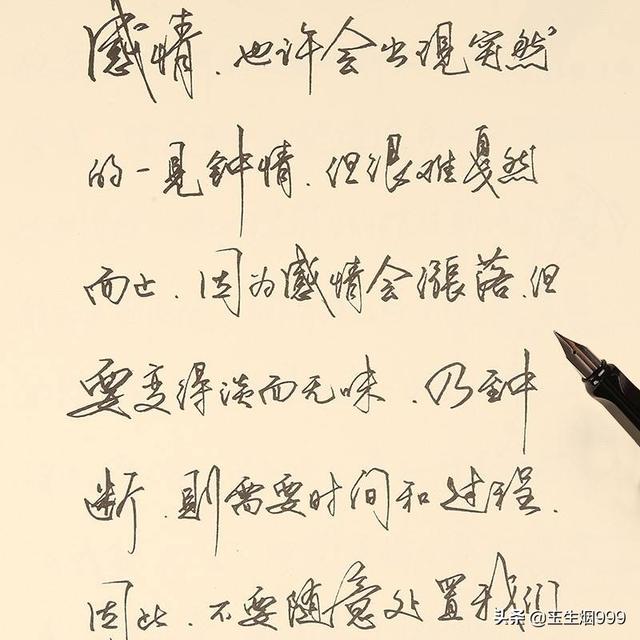 感情、也许会出现突然
的一見钟情、但很难戛然
而止、因为感情会漲落、但
要变得淡而无味、乃至中
断、则需要时间和过程、
因此、不要随意处置我们
头条 @玉生烟999